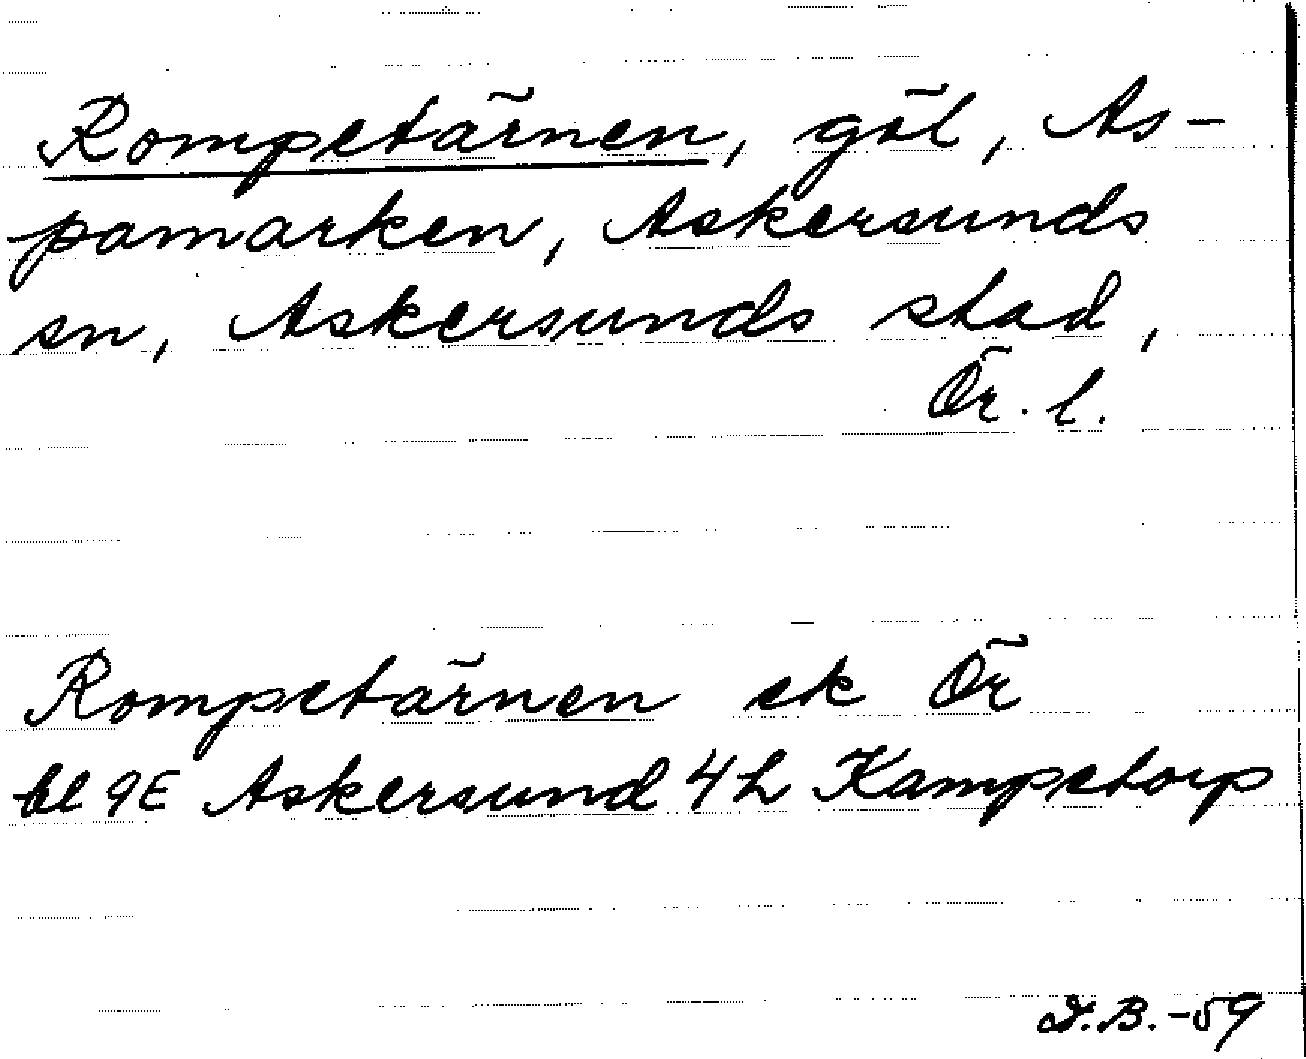 Rompetärnen, göl, As-
pamarken, Askersunds
sn, Askersunds stad,
Ör. l.
Rompetärnen ek Ör
bl 9E Askersund 4h Kampetorp
D.B.-59